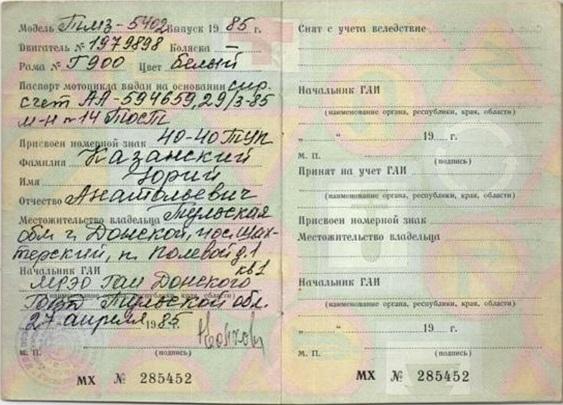 Модель Тмз-5402 Выпуск 1985 г.
Двигатель № 1979898 Коляска —
Рама № Г900 Цвет Белый
Паспорт мотоцикла выдан на основании спр.
счет АА-594659, 29/3-85
м-н-14 Тост
Присвоен номерной знак 40-40 ТУП
Фамилия Казанский
Имя Юрий
Отчество Анатольевич
Местожительство владельца Тульская
обл. г. Донской, пос. Шах-
терский, п. Полевой д. 1
кв 1
Начальник ГАИ
МРЭО ГАИ Донского
(наименование органа, республики, края, области)
Тульской обл.
27 апреля 1985
М. П. (подпись)
МХ № 285452
Снят с учета вследствие
Начальник ГАИ
(наименование органа, республики, края, области)
„ “ 19 г.
М. П. (подпись)
Принят на учет ГАИ
(наименование органа, республики, края, области)
Присвоен номерной знак
Местожительство владельца
Начальник ГАИ
(наименование органа, республики, края, области)
„ “ 19 г.
М. П. (подпись)
МХ № 285452